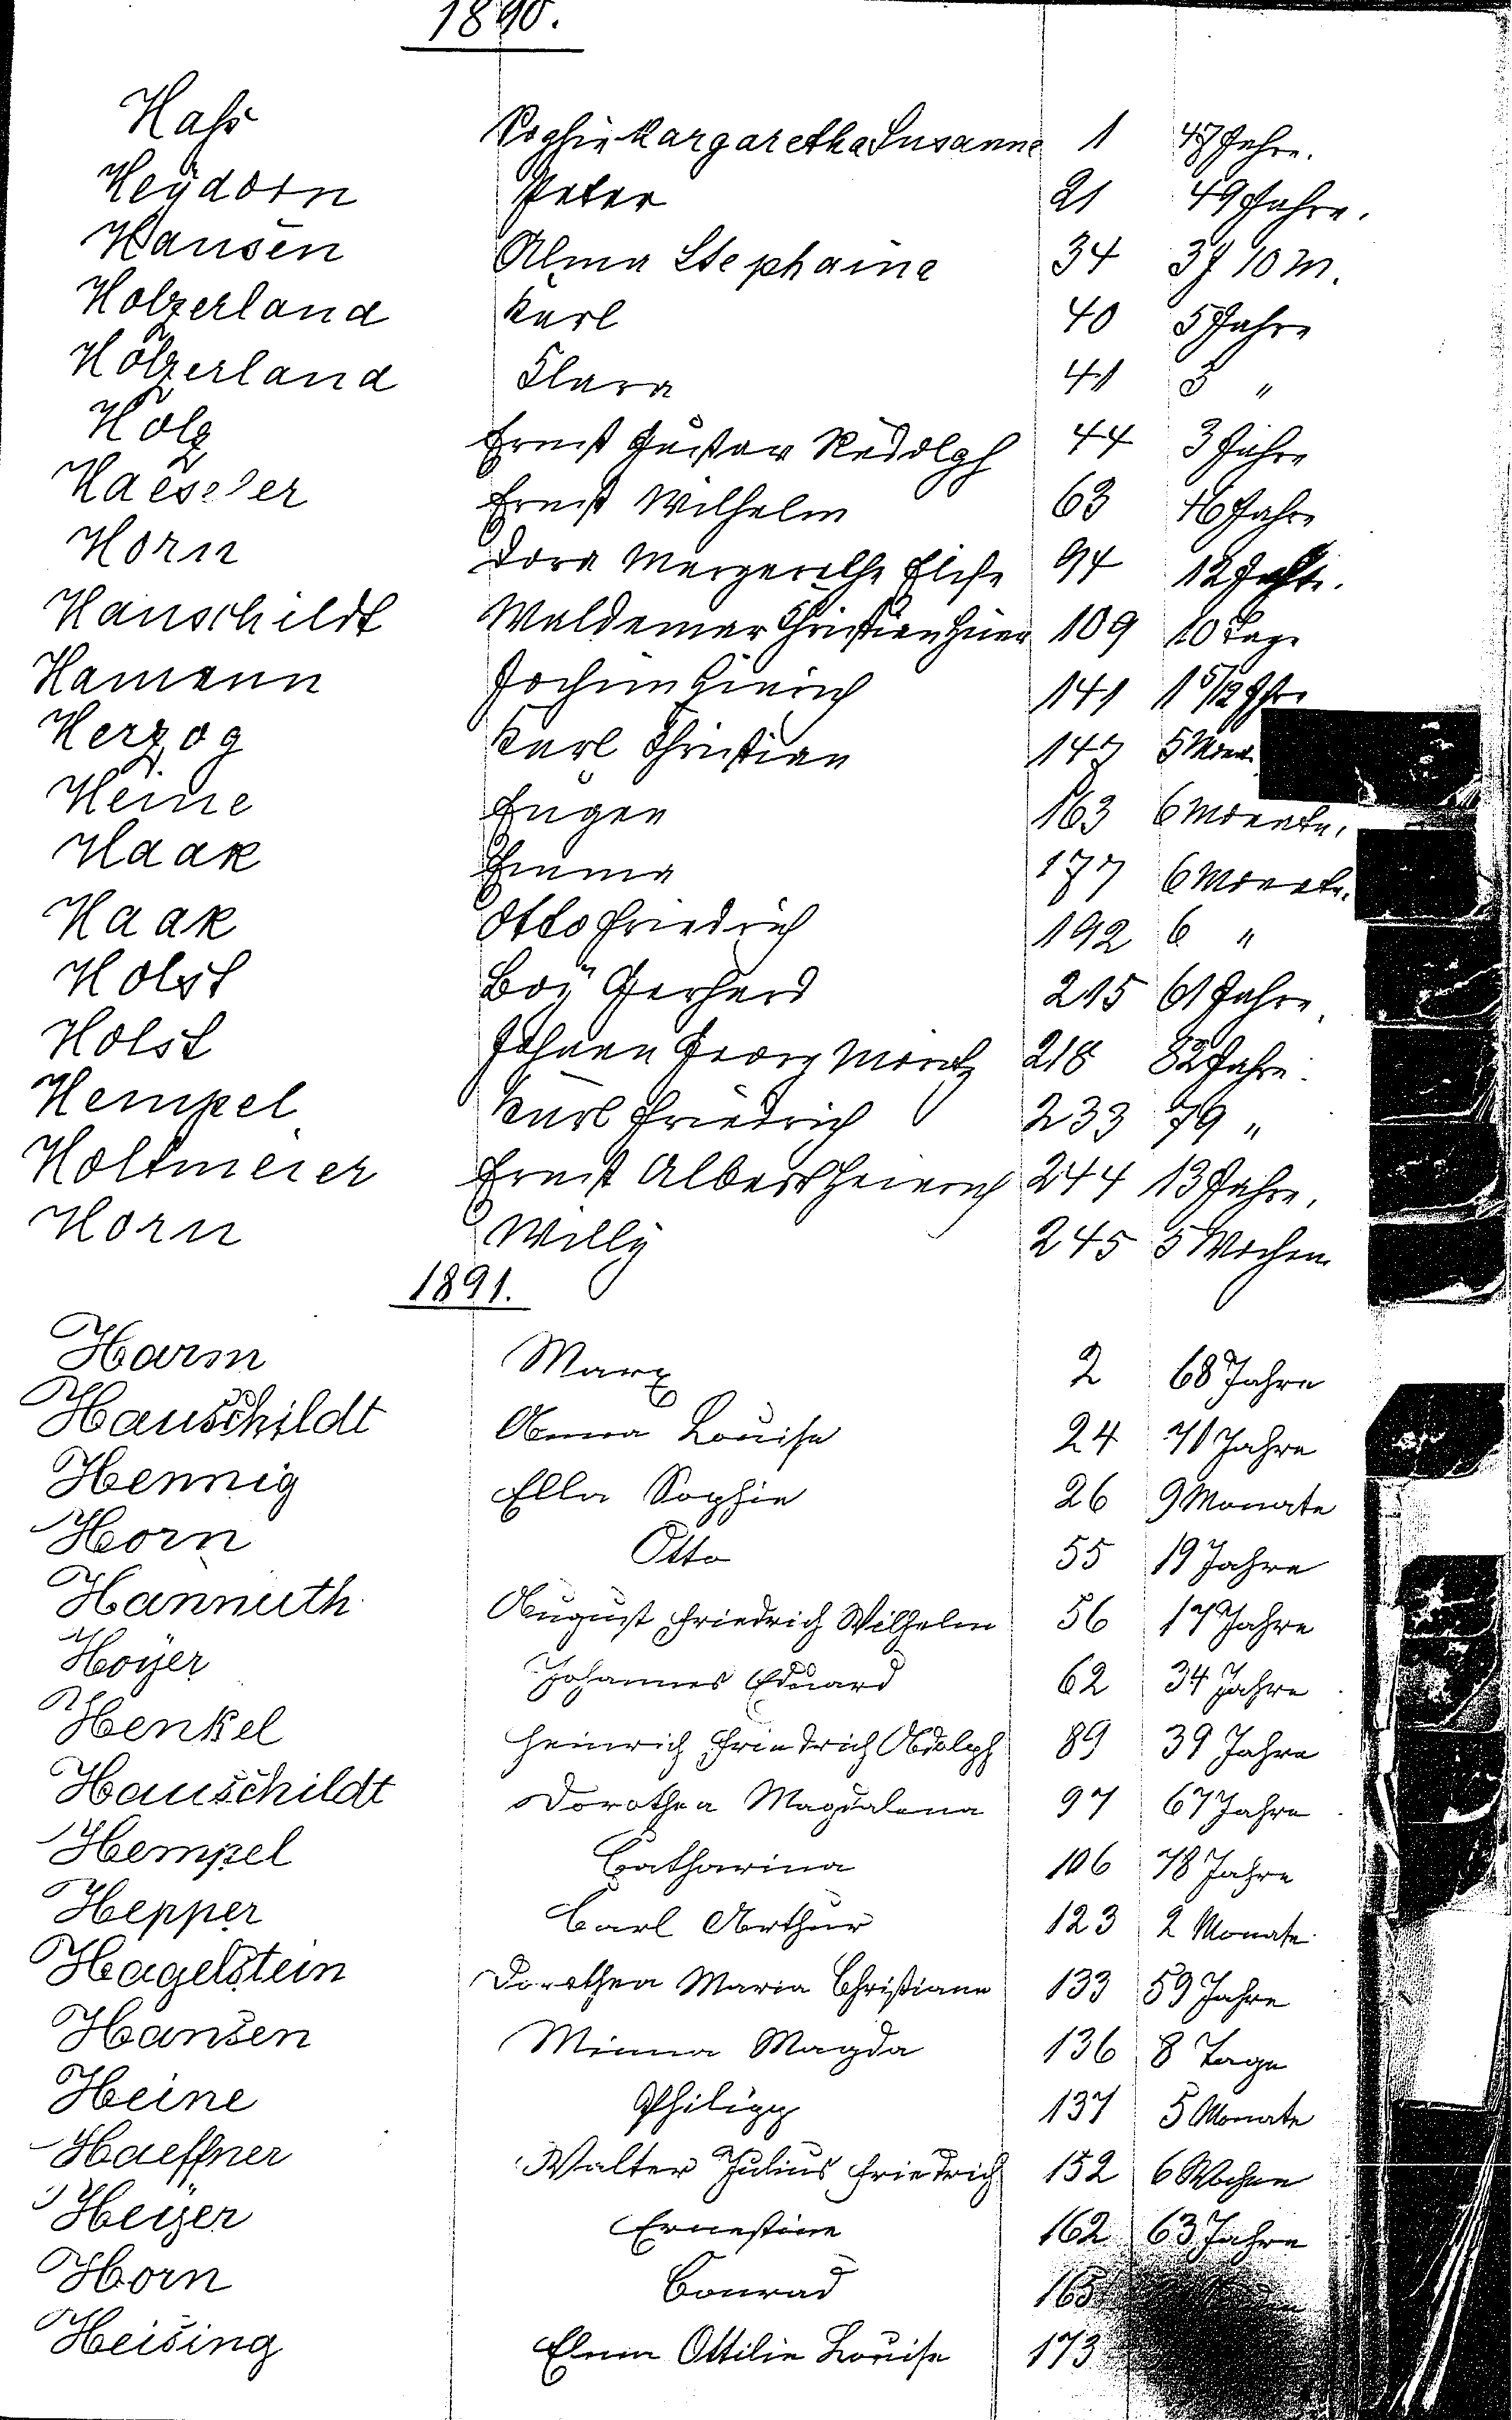 1890.
Hahs Sophie Margaretha Susanne 1 47 Jahre.
Heÿdorn Peter 21 49 Jahre.
Hansen Alma Stephaine 34 3 J 10 M.
Holzerland Karl 40 5 Jahre
Holzerland Clara 41 3 "
Holz Ernst Gustav Rudolph 44 3 Jahre
Haeseler Ernst Wilhelm 63 46 Jahre
Horn Dora Margarethe Elise 94 12
Hauschildt Waldemar Christian 109 10 Tage
Hamann Jochim Hinrich 141 1 5/12 Jhre
Herzog Karl Christian 147 5 Mon.
Heine Eugen 163 6 Monate.
Haak Emma 177 6 Monate.
Haak Otto Friedrich 192 6 "
Holst Boÿ Gerhard 215 61 Jahre
Holst Johann Georg Moritz 218 82 Jahre.
Hempel Karl Friedrich 233 79 "
Holtmeier Ernst Albert Heinrich 244 13 Jahre.
Horn Willÿ 245 5 Wochen
1891.
Harm Marx 2 68 Jahre
Hauschildt Anna Louise 24 71 Jahre
Hennig Ella Sophie 26 9 Monate
Horn Otto 55 19 Jahre
Hannuth August Friedrich Wilhelm 56 17 Jahre
Hoÿer Johannes Eduard 62 34 Jahre
Henkel Heinrich Friedrich Adolph 89 39 Jahre
Hauschildt Dorothea Magdalena 97 67 Jahre
Hempel Catharina 106 78 Jahre
Hepper Carl Arthur 123 2 Monate
Hagelstein Dorothea Maria Christiane 133 59 Jahre
Hansen Minna Magda 136 8 Tage
Heine Philipp 137 5 Monate
Haeffner Walter Julius Friedrich 152 6 Wochen
Heÿer Ernestine 162 63 Jahre
Horn Conrad 165
Heising Ottilie Louise 173